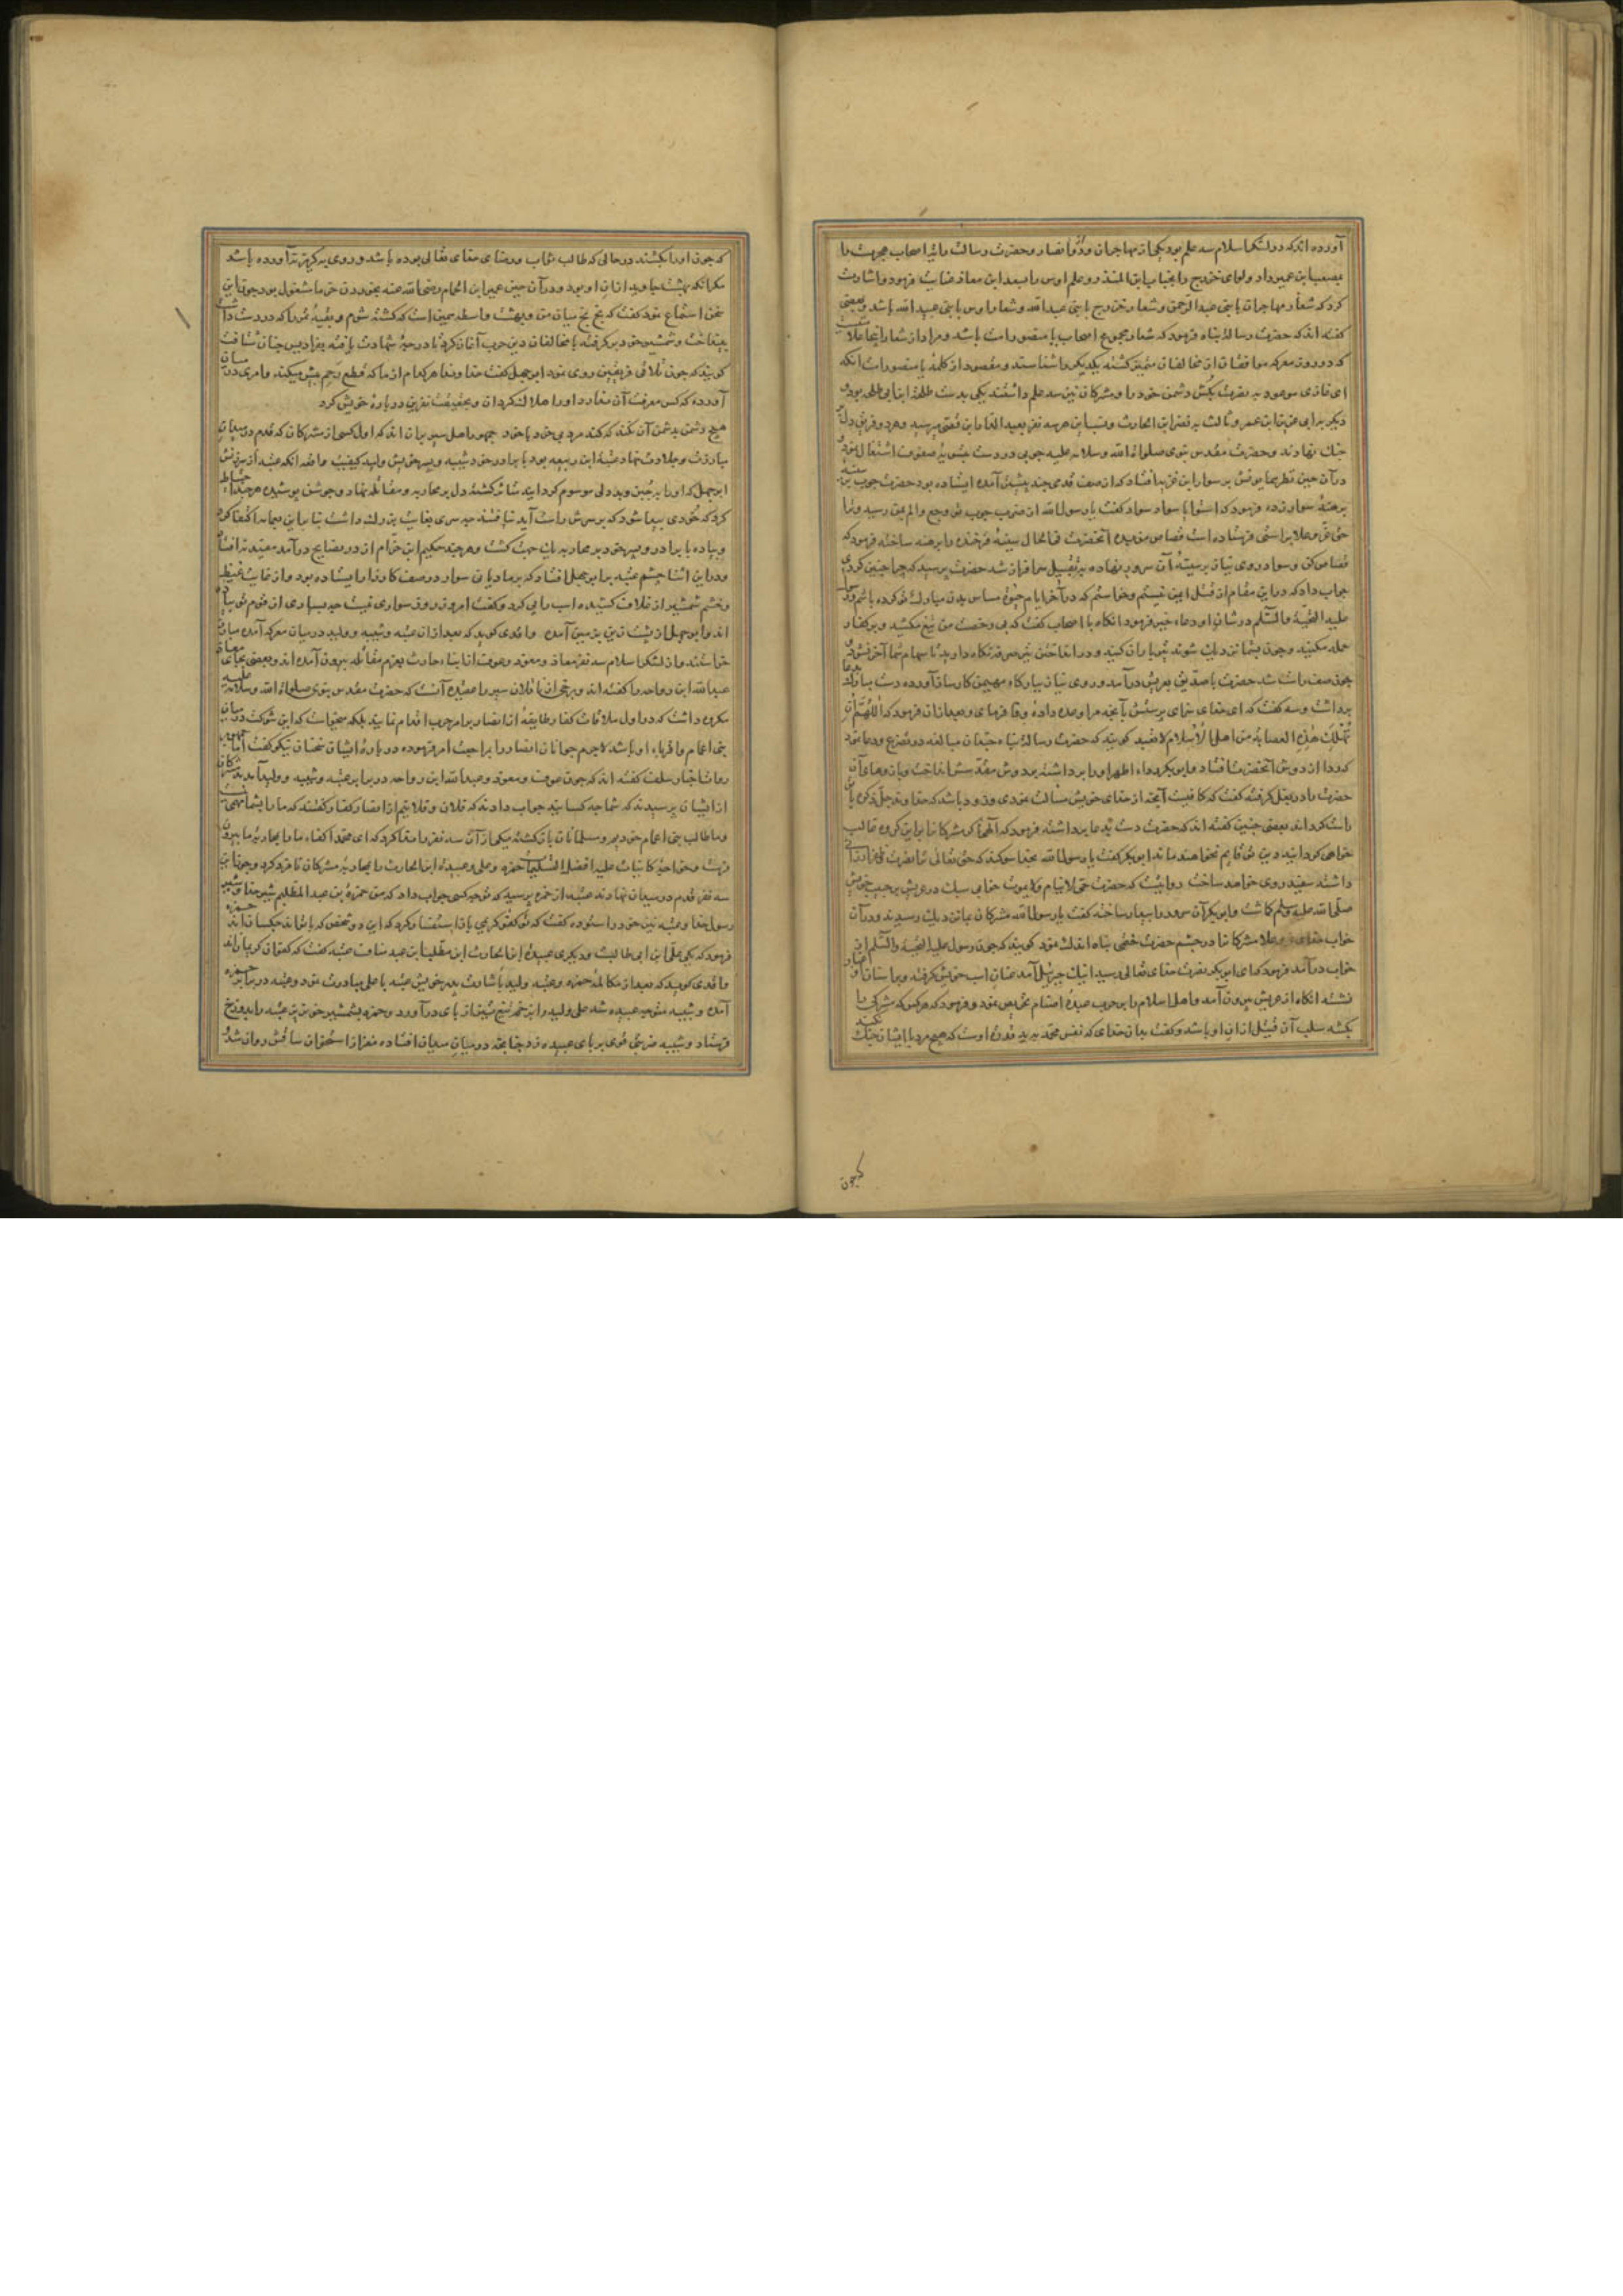 آورده اند که در لشکر اسلام سه علم بود یکی از مهاجران و دو از انصار و حضرت رسالت رایت اصحاب هجرت را
بمصعب ابن عمیر داد و لوای خزرج را بحباب ابن المنذر و علم اوس را بسعد ابن معاذ عنایت فرمود و اشارت
کرد که شعار مهاجران یا بنی عبدالرحمن و شعار خزرج یا بنی عبدالله و شعار اوس یا بنی عبیدالله باشد و بعضی
گفته اند که حضرت رسالت پناه فرمود که شعار مجموع اصحاب یا منصور امت باشد و مراد از شعار اینجا علامت
که در روز معرکه موافقان از مخالفان متمیز گشته یکدیگر را شناسند و مقصود از کلمه یا منصور امت آنکه
ای غازی موعود به نصرت بکش دشمن خود را و مشرکان نیز سه علم داشتند یکی بدست طلحة ابن ابی طلحه بود و
دیگر بر ابی عزیز ابن عمیر و ثالث بر نضر ابن الحارث و نسب این هر سه نفر بعبد الدار ابن قصی میرسید و هر دو فریق دل بر
جنک نهادند و حضرت مقدس نبوی صلوات الله وسلامه علیه چوبی در دست بتسویه صفوف اشتغال نمود
در آن حین نظر همایونش بر سواد ابن غزیه افتاد که از صف قدمی چند پیشتر آمده ایستاده بود حضرت چوب بر سینه
برهنه سواد زده فرمود که استو یا سواد سواد گفت یا رسول الله از ضرب چوب تو وجع و الم بمن رسید و ترا
حق عز و علا براستی فرستاده است قصاص من بده آنحضرت فی الحال سینه فرخنده را برهنه ساخته فرمود که
قصاص کن و سواد روی نیاز بر سینه آن سرور نهاده به تقبیل سرافراز شد حضرت پرسید که چرا چنین کردی
جواب داد که درین مقام از قتل ایمن نیستم و خواستم که در آخر ایام حیوة مساس بدن مبارک تو کرده باشم رسول
علیه التحیة والسلم در شان او دعاء خیر فرمود آنکاه با اصحاب گفت که بی رخصت من تیغ مکشید و بر کفار
حمله مکنید و چون بشما نزدیک شوند تیرباران کنید و در انداختن تیر صرفه نکاه دارید تا سهام شما آخر نشود و
چون صف راست شد حضرت با صدیق بعریش درآمد و روی نیاز ببارکاه مهیمن کارساز آورده دست مبارک بدعا
برداشت و سه گفت که ای خدای سزای پرستش بآنچه مرا وعده داده وفا فرمای و بعد از آن فرمود که اللهم ان
تهلک هذه العصابة من اهل الاسلام لا تعبد گویند که حضرت رسالت پناه چندان مبالغه در تضرع و دعا نمود
که ردا از دوش آنحضرت افتاد و ابوبکر رداء اطهر او را برداشته بدوش مقدسش انداخت و بازوهای آن
حضرت را در بغل کرفته گفت که کافیست آنچه از خدای خویش مسالت نمودی و زود باشد که خداوند جل ذکره با تو
راست کرداند بعضی چنین گفته اند که حضرت دست بدعا برداشته فرمود که الهی اگر مشرکان را برین کروه غالب
خواهی کردانید دین تو قایم نخواهد ماند ابوبکر گفت یا رسول الله بخدا سوکند که حق تعالی ترا نصرت
داشته سفید روی خواهد ساخت روایتست که حضرت حی لا ینام و لا یموت خوابی سبک در عریش بر حبیب خویش
صلی الله علیه وسلم کماشت و ابوبکر آن سرور را بیدار ساخته گفت یا رسول الله مشرکان بما نزدیک رسیدند و در آن
خواب خدای عز و علا مشرکان را در چشم حضرت ختمی پناه اندک نمود گویند که چون رسول علیه التحیة والسلم از
خواب درآمد فرمود که ای ابوبکر نصرت خدای تعالی رسید اینک جبرئیل آمد عنان اسب خویش گرفته و بر اسنان او غبار
نشسته آنکاه از عریش بیرون آمد و اهل اسلام را بر حرب عبده اصنام تحریص نمود و فرمود که هرکس که مشرکی را
بکشد سلب آن قتیل از آن او باشد و گفت بدان خدای که نفس محمد بید قدرة اوست که هیچ مرد با ایشان جنک نکند
که چون
که چون او را بکشند در حالی که طالب ثواب و رضای خدای تعالی بوده باشد و روی به کریز نیاورده باشد
مگر آنکه بهشت جاوید از آن او بود و در آن حین عمیر ابن الحمام رضی الله عنه بخوردن خرما مشغول بود چون این
سخن استماع نمود گفت که بخ بخ میان من و بهشت واسطه همین است که کشته شوم و بقیه تمر را که در دست داشت
بینداخت و شمشیر خود برگرفته با مخالفان دین حرب آغاز کرد تا درجه شهادت یافته بفرادیس جنان شتافت
گویند که چون تلاقی فریقین روی نمود ابوجهل گفت خداوندا هر کدام از ما که قطع رحم بیش میکند و امری در میان
آورده که کس معرفت آن ندارد او را هلاک کردان و بحقیقت نفرین در باره خویش کرد
هیچ دشمن بدشمن آن نکند که کند مرد بی خرد با خود جمهور اهل سیر بر آن اند که اول کسی از مشرکان که قدم در میدان
مبارزت و جلادت نهاد عتبة ابن ربیعه بود با برادر خود شیبه و پسر خویش ولید کیفیت واقعه آنکه عتبه از سرزنش
ابوجهل که او را بجبن و بد دلی موسوم کردانید متاثر کشته دل بر محاربه و مقاتله نهاد و جوشن پوشیده هر چند احتیاط
کرد که خودی پیدا شود که بر سرش راست آید نیافتند چه سری بغایت بزرک داشت بنابرین بعمامه اکتفا کرد
و پیاده با برادر و پسر خود بر محاربه یک جهت کشت و هرچند حکیم ابن حزام از در نصایح درآمد مفید نه افتاد
و در این اثنا چشم عتبه بر ابوجهل افتاد که بر مادیان سوار در صف کارزار ایستاده بود و از غایت غیظ
و خشم شمشیر از غلاف کشیده اسب را پی کرد و گفت امروز روز سواری نیست چه بسیاری از قوم تو پیاده
اند و ابوجهل از پشت زین بزمین آمد و واقدی گوید که بعد از آن عتبه و شیبه و ولید در میان معرکه آمده مبارز
خواستند و از لشکر اسلام سه نفر معاذ و معوذ و عوف ابناء حارث بعزم مقاتله بیرون آمده اند و بعضی بجای معاذ
عبدالله ابن رواحه را گفته اند و برخی از ناقلان سیر را عقیده آنست که حضرت مقدس نبوی صلوات الله و سلامه علیه
مکروه داشت که در اول ملاقات کفار طایفه از انصار بر امر حرب اقدام نمایند بلکه میخواست که این شوکت در میان
بنی اعمام و اقرباء او باشد لاجرم جوانان انصار را براجعت امر فرموده در باره ایشان سخنان نیکو گفت اما در
روایت اخبار سلف گفته اند که چون عوف و معوذ و عبدالله ابن رواحه در برابر عتبه و شیبه و ولید آمدند مشرکان
از ایشان پرسیدند که شما چه کسانید جواب دادند که فلان و فلانیم از انصار کفار گفتند که ما را بشما مهمی نیست
و ما طالب بنی اعمام خودیم و مسلمانان باز کشته یکی از آن سه نفر ندا کرد که ای محمد اکفاء ما را بمحاربه ما بیرون
فرست و خواجه کاینات علیه افضل التسلیمات حمزه و علی و عبیدة ابن الحارث را بمحاربه مشرکان نامزد کرد و چون این
سه نفر قدم در میدان نهادند عتبه از حمزه پرسید که تو چه کسی جواب داد که من حمزة بن عبدالمطلبم شیر خدا و شیر
رسول خدا و عتبه نیز خود را ستوده گفت که تو کفو کریمی باز استفسار کرد که این دو شخص که با تواند چکسانند حمزه
فرمود که یکی علی ابن ابی طالبست و دیگری عبیدة ابن الحارث ابن مطلب ابن عبد مناف عتبه گفت که کفوان کریمان اند
واقدی گوید که بعد از مکالمه حمزه و عتبه ولید باشارت پدر خویش عتبه با علی مبادرت نمود و عتبه در برابر حمزه
آمده و شیبه متوجه عبیده شد علی ولید را بزخم تیغ تیز از پای درآورد و حمزه بشمشیر خون ریز عتبه را بدوزخ
فرستاد و شیبه ضربتی قوی بر پای عبیده زد چنانچه در میان میدان افتاده مغز از استخوان ساقش روان شد